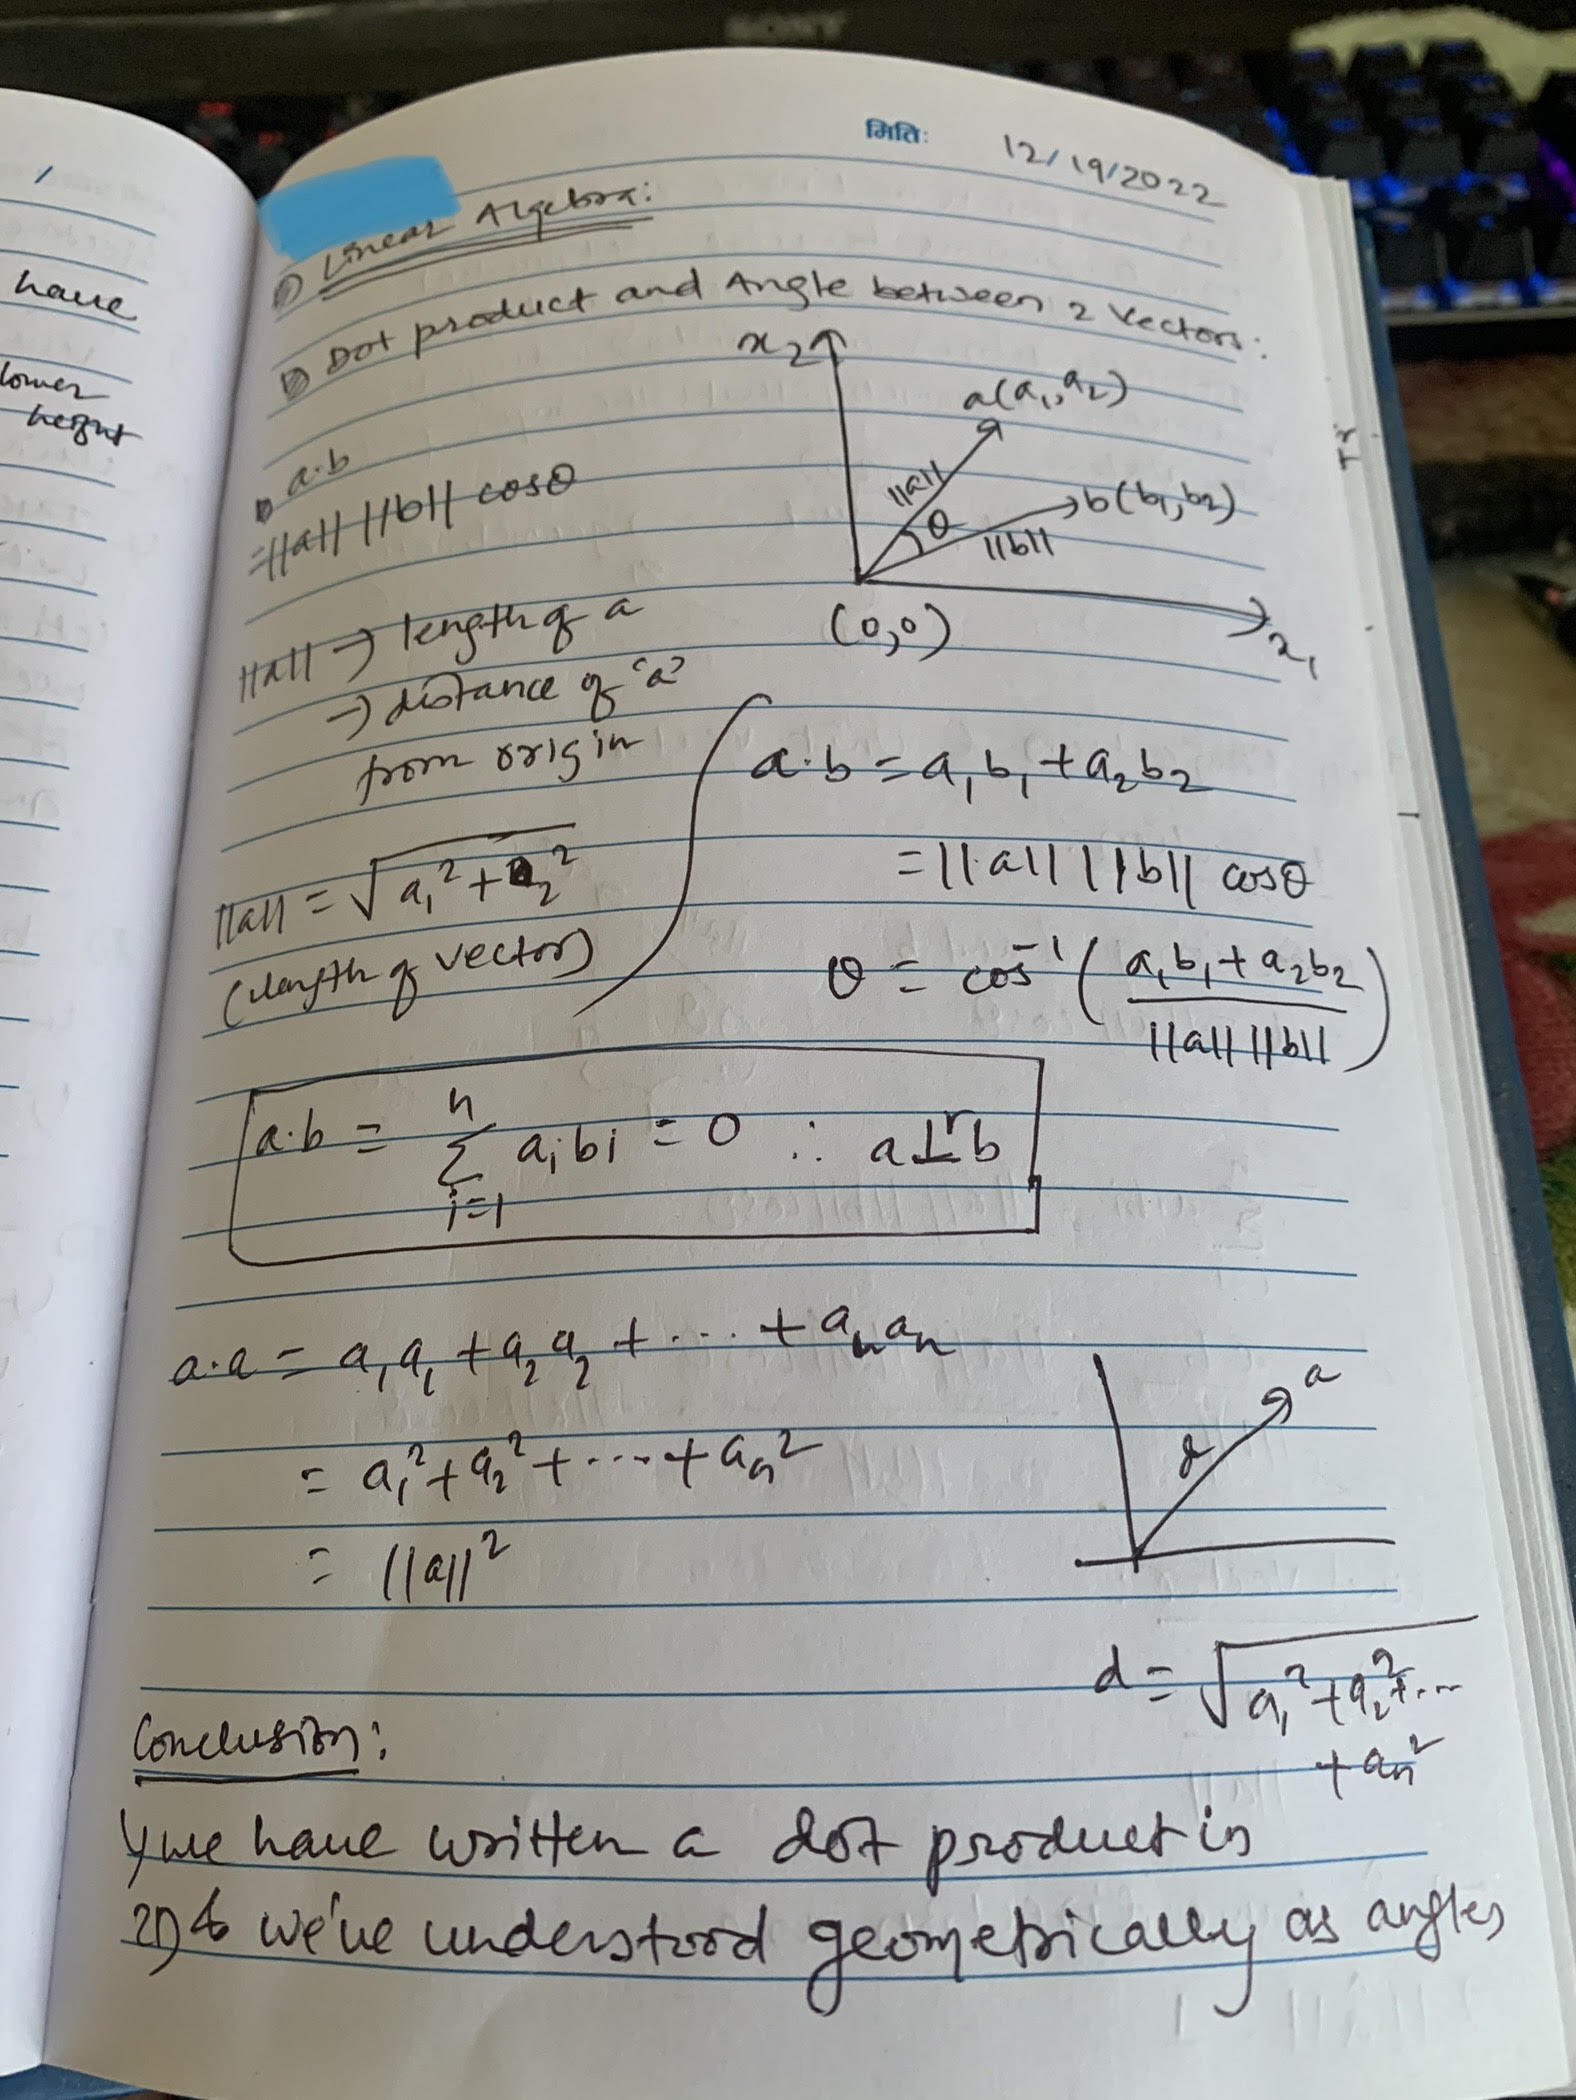 SONY
मिति: 12/19/2022
Linear Algebra:
Dot product and Angle between 2 Vectors:
a.b
=||a|| ||b|| cosθ
x₂
a(a₁,a₂)
||a||
θ
b(b₁,b₂)
||b||
(0,0)
x₁
||a|| → length of a
→ distance of 'a'
from origin
||a|| = √a₁² + a₂²
(length of vector)
a.b = a₁b₁ + a₂b₂
= ||a|| ||b|| cosθ
θ = cos⁻¹ (a₁b₁ + a₂b₂ / ||a|| ||b||)
a.b = n Σ i=1 aᵢbᵢ = 0 ∴ a⊥ʳb
a.a = a₁a₁ + a₂a₂ + ... + aₙaₙ
= a₁² + a₂² + ... + aₙ²
= ||a||²
a
d
d = √a₁² + a₂² + ...
+ aₙ²
Conclusion:
we have written a dot product in
2D & we've understood geometrically as angles
have
lower
height